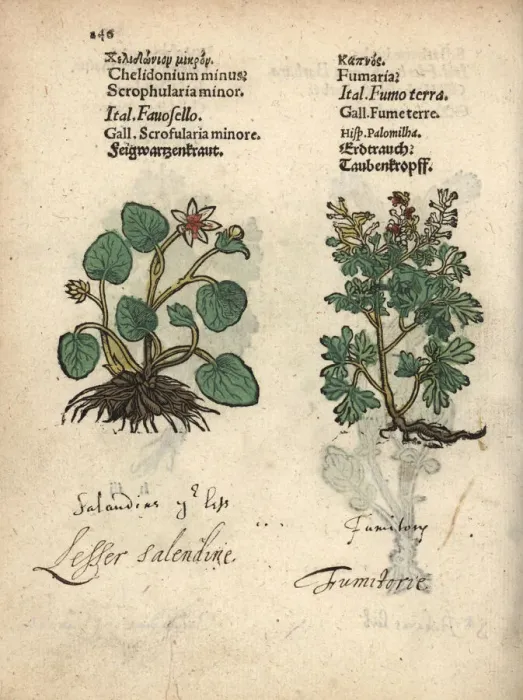 246
Χελιδώνιον μικρόν.
Chelidonium minus;
Scrophularia minor.
Ital. Fauoſello.
Gall. Scrofularia minore.
Feigwartzenkraut.
Καπνός.
Fumaria;
Ital. Fumo terra.
Gall. Fumeterre.
Hiſp. Palomilha.
Erdtrauch;
Taubenkropff.
Salandine yᵉ leſſ
Leſſer Salendine.
Fumitory
Fumitorie